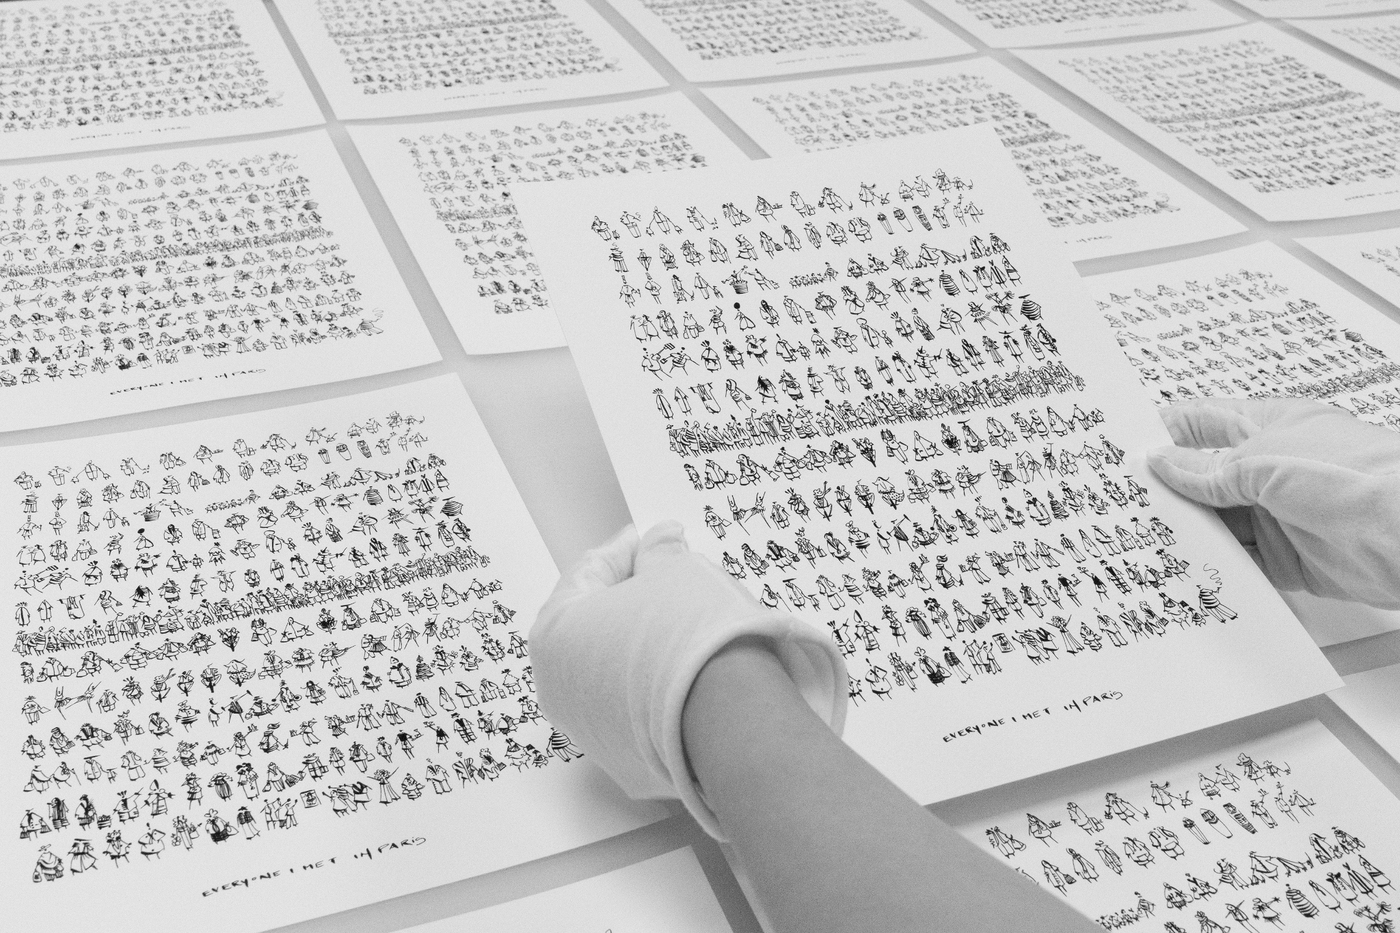 EVERYONE I MET IN PARIS
EVERYONE I MET IN PARIS
EVERYONE I MET IN PARIS
EVERYONE I MET IN PARIS